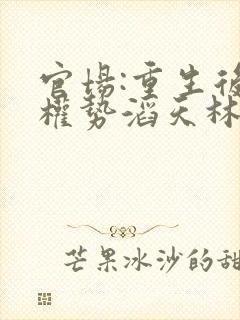 官场:重生後
權勢滔天林
芒果冰沙的甜